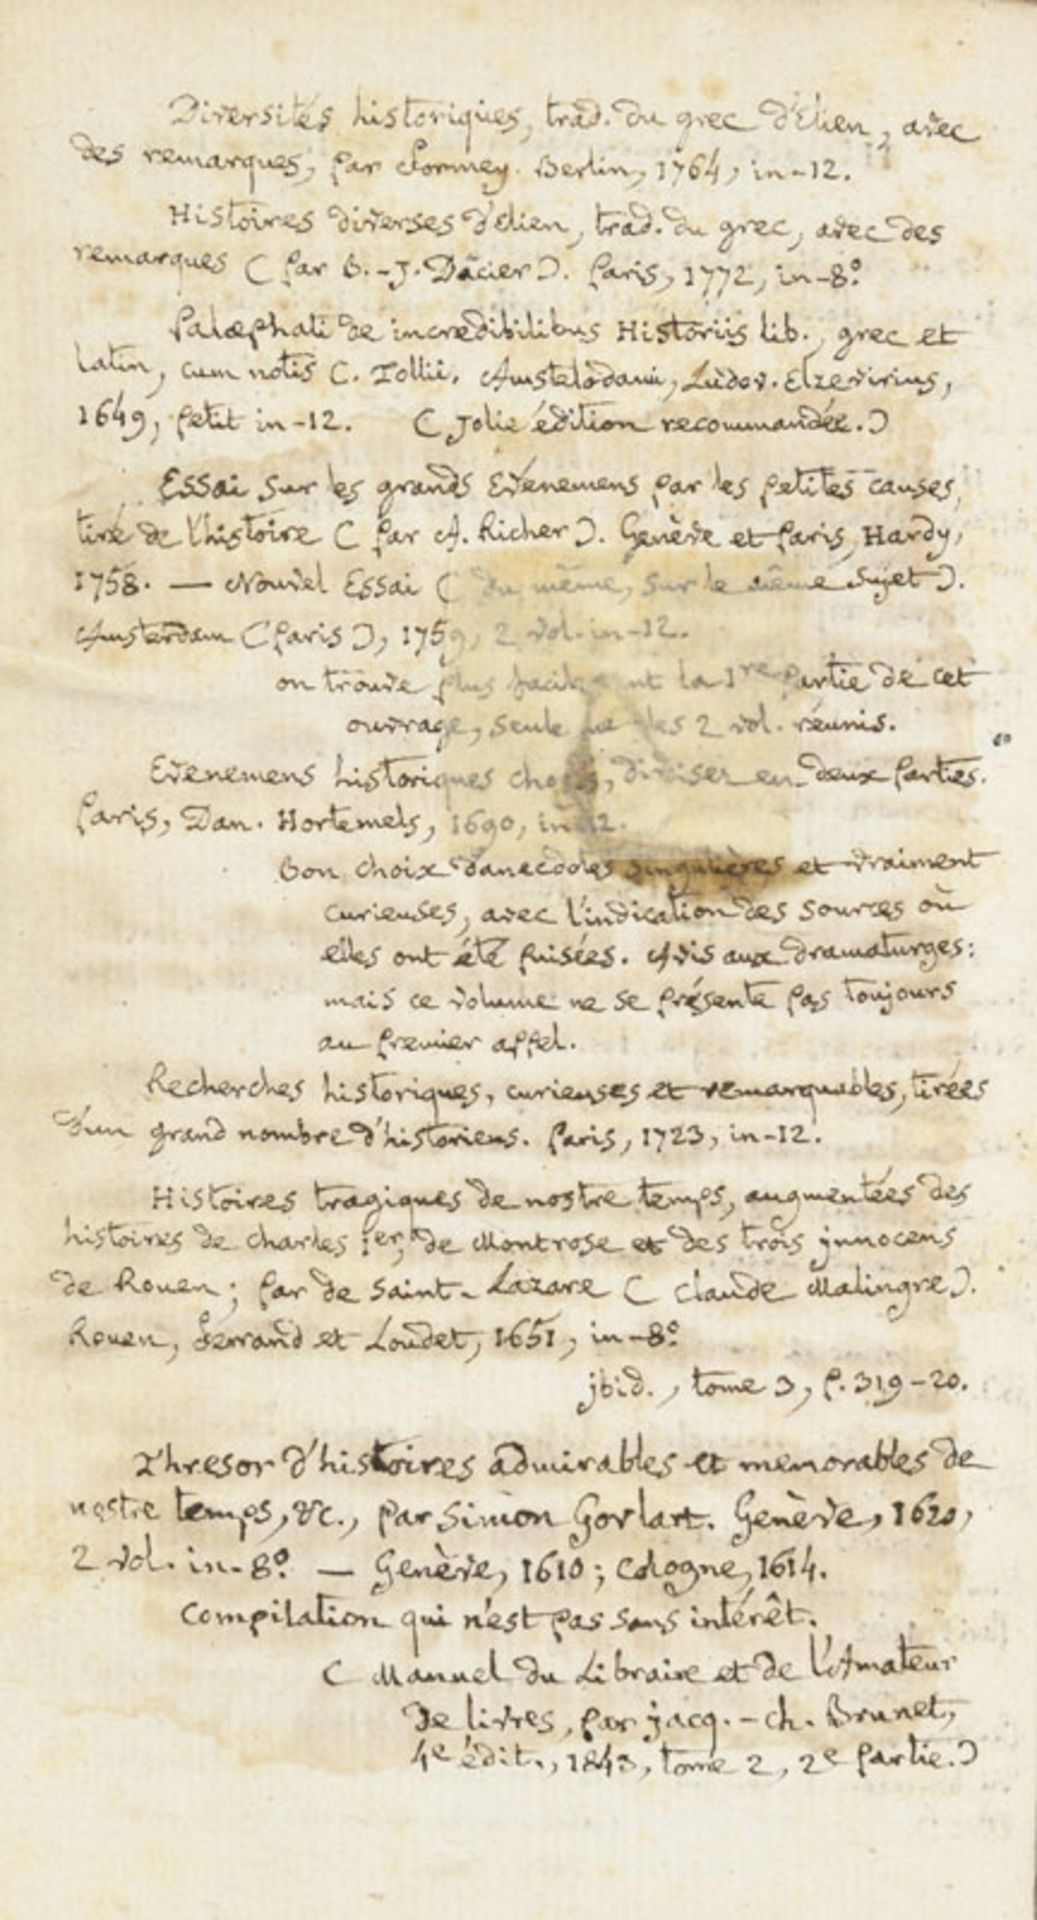 Diversités historiques, trad. du grec d'Elien, avec
des remarques, par Formey. Berlin, 1764, in-12.
Histoires diverses d'Elien, trad. du grec, avec des
remarques (par B.-J. Dacier). Paris, 1772, in-8º
Palæphati de incredibilibus Historiis lib., grec et
latin, cum notis C. Tollii. Amstelodami, Ludov. Elzevirius,
1649, petit in-12. (Jolie édition recommandée.)
Essai sur les grands Evénemens par les petites causes,
tiré de l'histoire (par A. Richer). Genève et Paris, Hardy,
1758. — Nouvel Essai (du même, sur le même sujet).
Amsterdam (Paris), 1759, 2 vol. in-12.
on trouve plus facilement la 1re partie de cet
ouvrage, seule que les 2 vol. réunis.
Evenemens historiques choisis, divisez en deux parties.
Paris, Dan. Hortemels, 1690, in-12.
Bon choix d'anecdotes singulières et vraiment
curieuses, avec l'indication des sources où
elles ont été puisées. Avis aux dramaturges:
mais ce volume ne se présente pas toujours
au premier appel.
Recherches historiques, curieuses et remarquables, tirées
d'un grand nombre d'historiens. Paris, 1723, in-12.
Histoires tragiques de nostre temps, augmentées des
histoires de Charles 1er, de Montrose et des trois jnnocens
de Rouen; par de Saint-Lazare (Claude Malingre).
Rouen, Ferrand et Loudet, 1651, in-8º
jbid., tome 3, p. 319-20.
Thresor d'histoires admirables et memorables de
nostre temps, &c., par Simon Govlart. Genève, 1620,
2 vol. in-8º — Genève, 1610; Cologne, 1614.
Compilation qui n'est pas sans intérêt.
(Manuel du Libraire et de l'Amateur
De livres, par jacq.-ch. Brunet,
4e édit., 1843, tome 2, 2e partie.)